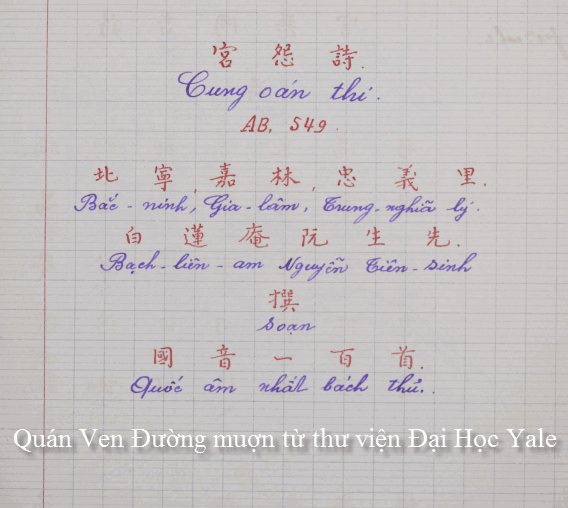 宮 怨 詩.
Cung oán thi.
AB, 549.
北 寧, 嘉 林, 忠 義 里.
Bắc-ninh, Gia-lâm, Trung-nghĩa lý.
白 蓮 庵 阮 生 先.
Bạch-liên-am Nguyễn Tiên-sinh
撰
soạn
國 音 一 百 首.
Quốc âm nhất bách thủ.
Quán Ven Đường mượn từ thư viện Đại Học Yale